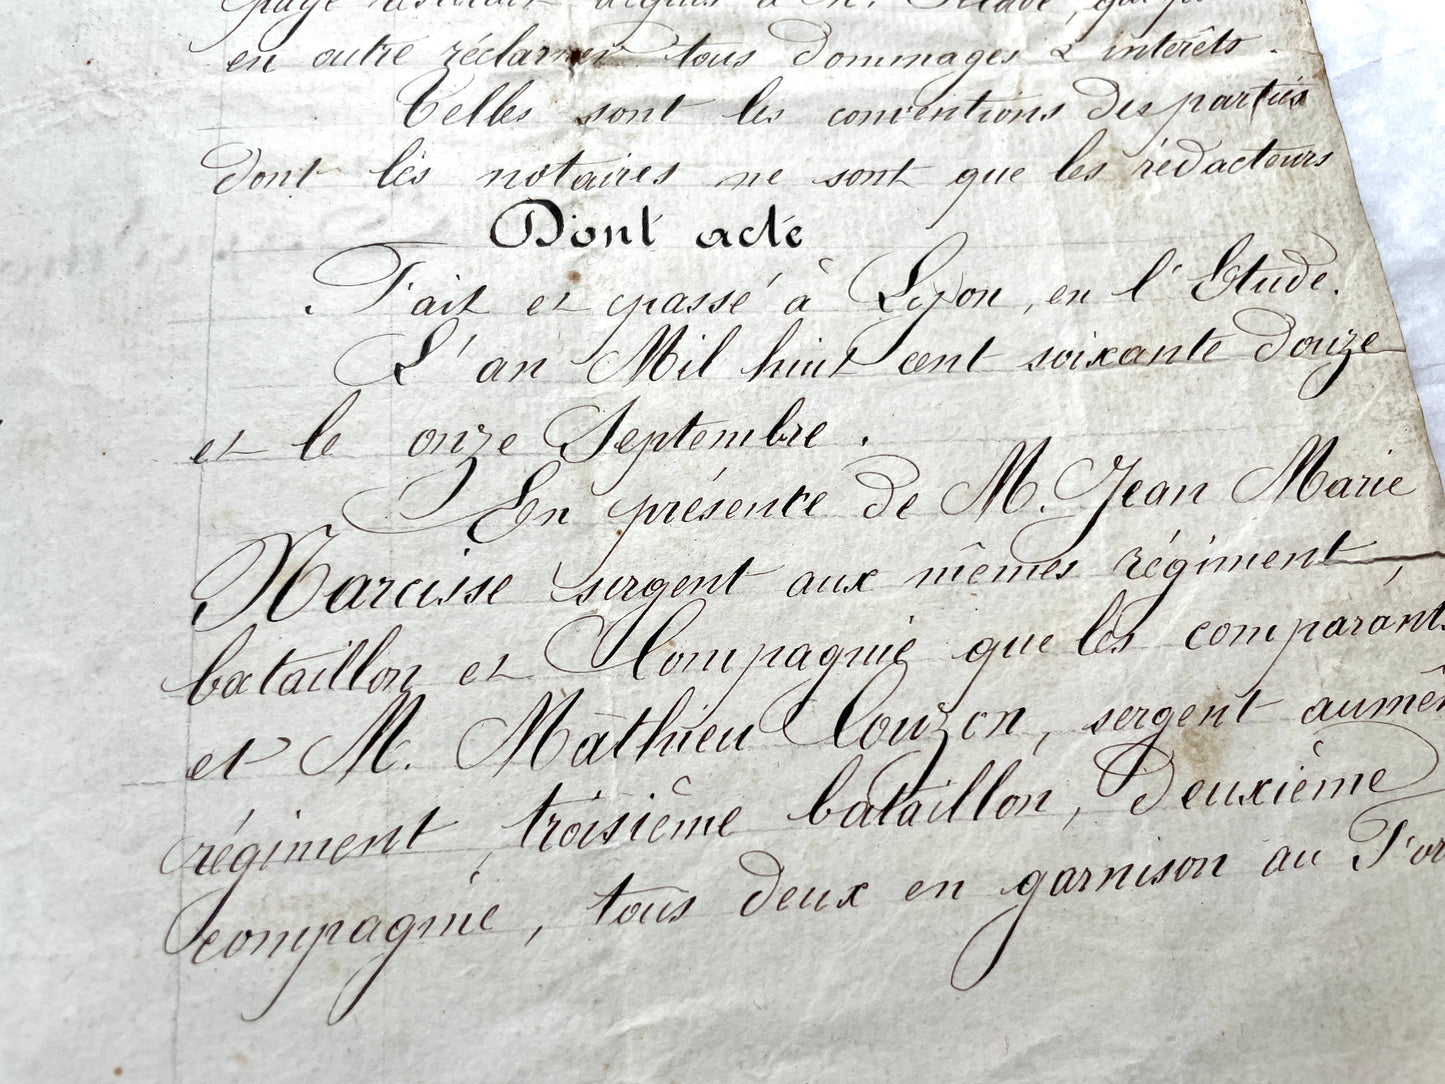 en outre réclamer tous dommages & intérêts.
Telles sont les conventions des parties
dont les notaires ne sont que les rédacteurs
Dont acte
Fait et passé à Lyon, en l'Etude.
L'an Mil huit cent soixante douze
et le onze Septembre.
En présence de M. Jean Marie
Narcisse sergent aux mêmes régiment,
bataillon et Compagnie que les comparants
et M. Mathieu Couzon, sergent aumê
régiment, troisième bataillon, deuxième
compagnie, tous deux en garnison au For